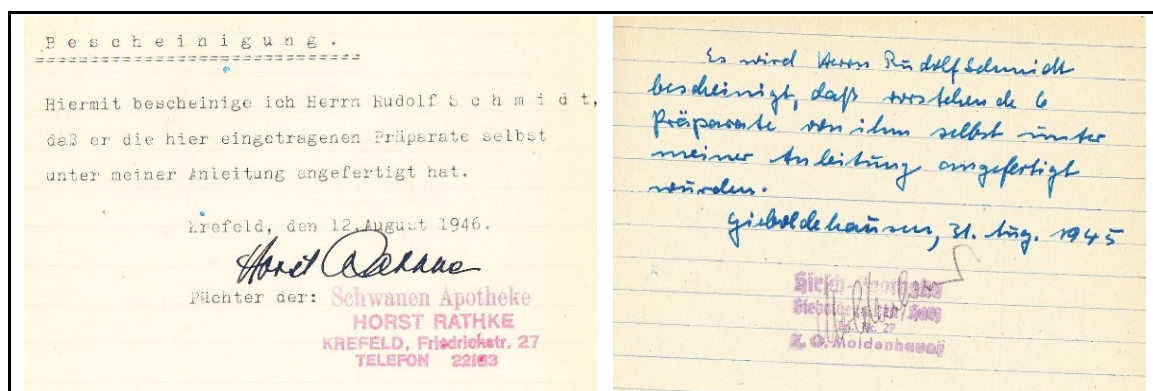 Bescheinigung.
Hiermit bescheinige ich Herrn Rudolf Schmidt,
daß er die hier eingetragenen Präparate selbst
unter meiner Anleitung angefertigt hat.
Krefeld, den 12.August 1946.
Horst Rathke
Pächter der: Schwanen Apotheke
HORST RATHKE
KREFELD, Friedrichstr. 27
TELEFON
Es wird Herrn Rudolf Schmidt
bescheinigt, daß vorstehende 6
Präparate von ihm selbst unter
meiner Anleitung angefertigt
wurden.
Gieboldehausen, 31. Aug. 1945
Apotheke
27
Moldenhauer